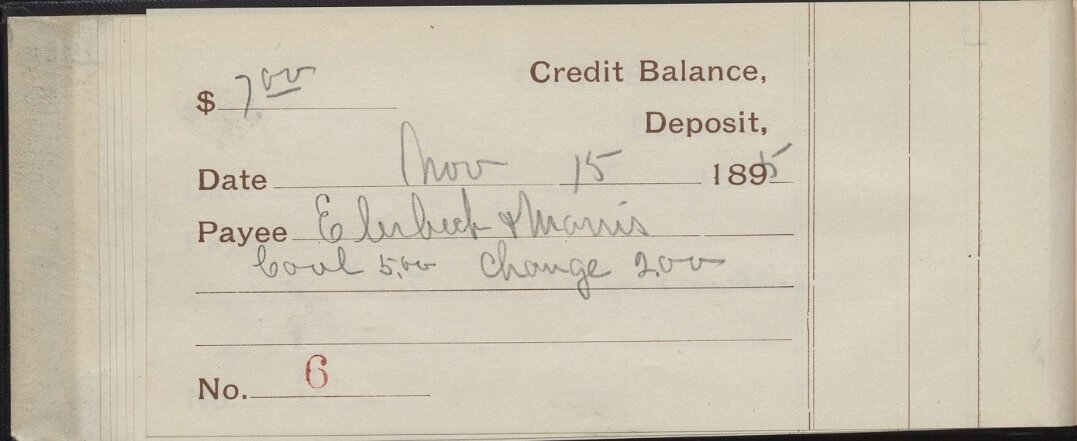 $ 7.00 Credit Balance,
Deposit,
Date Nov 15 1895
Payee Elerbeck & Morris
Coal 5.00 Change 2.00
No. 6